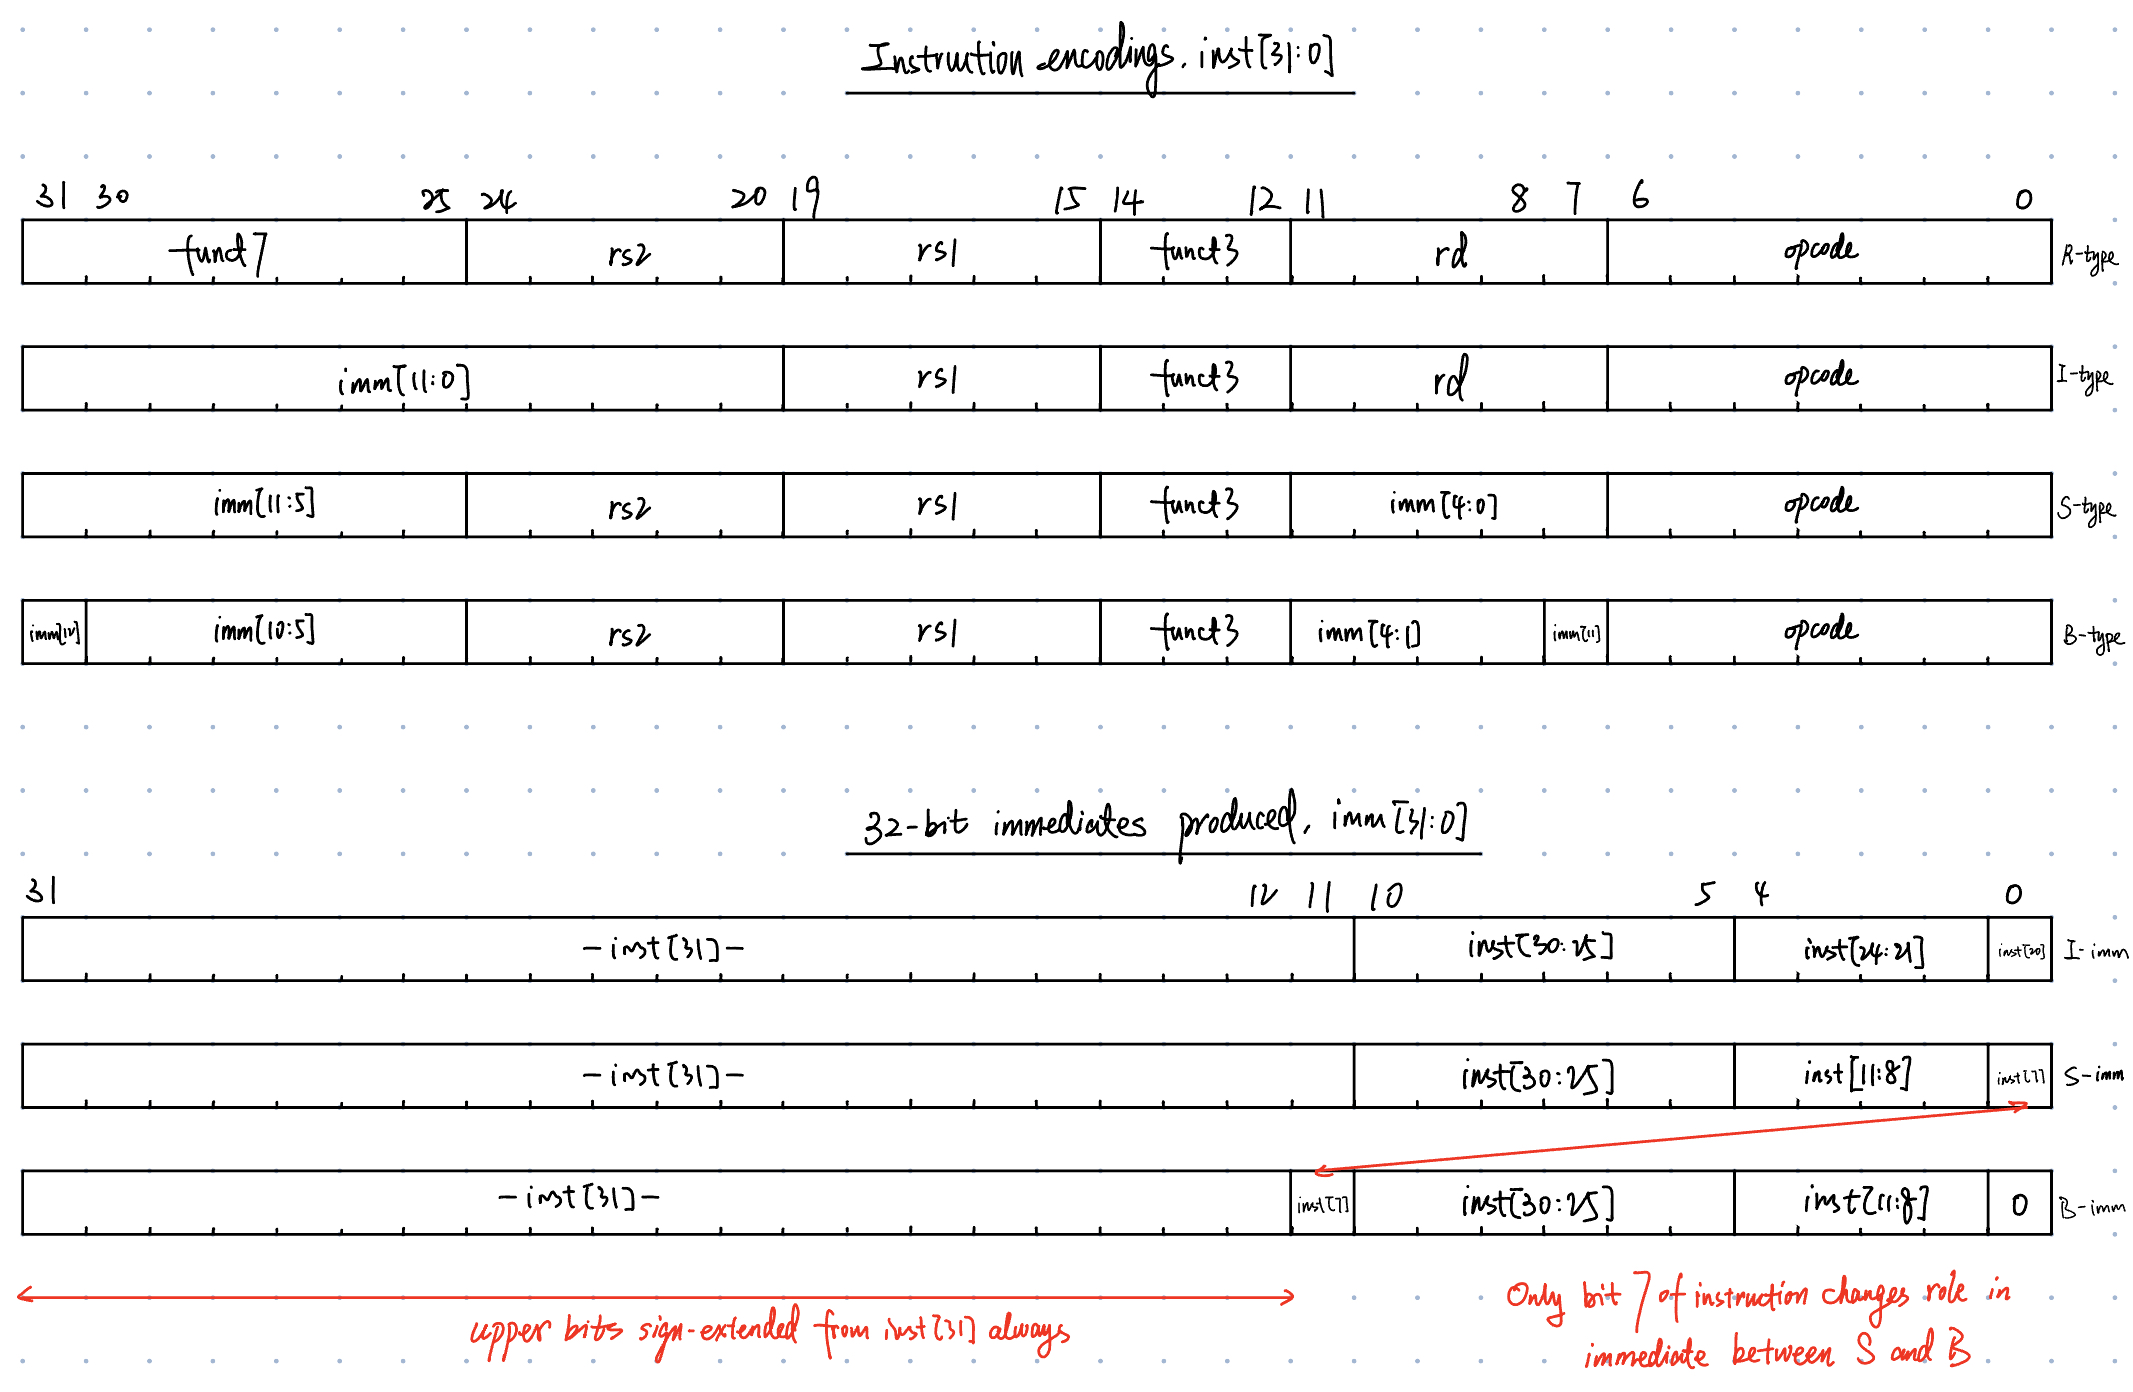 Instrution encodings. inst[31:0]
31 30 25 24 20 19 15 14 12 11 8 7 6 0
funct7 rs2 rs1 funct3 rd opcode R-type
imm[11:0] rs1 funct3 rd opcode I-type
imm[11:5] rs2 rs1 funct3 imm[4:0] opcode S-type
imm[12] imm[10:5] rs2 rs1 funct3 imm[4:1] imm[11] opcode B-type
32-bit immediates produced, imm[31:0]
31 12 11 10 5 4 0
-inst[31]- inst[30:25] inst[24:21] inst[20] I-imm
-inst[31]- inst[30:25] inst[11:8] inst[7] S-imm
-inst[31]- inst[7] inst[30:25] inst[11:8] 0 B-imm
upper bits sign-extended from inst[31] always
Only bit 7 of instruction changes role in
immediate between S and B